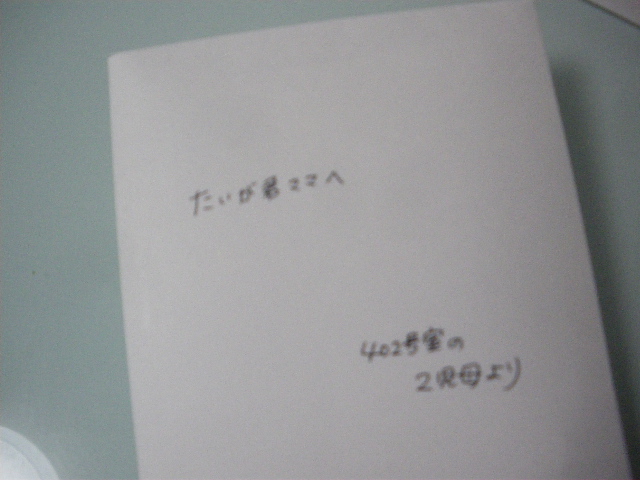 たいが君ママへ
402号室の
2児母より